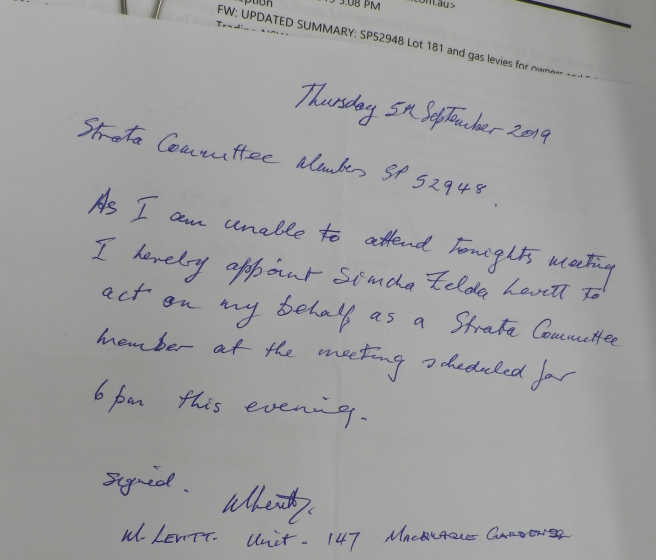 .com.au>
3:08 PM
FW: UPDATED SUMMARY: SP52948 Lot 181 and gas levies for owners and
Thursday 5th September 2019
Strata Committee Members SP 52948.
As I am unable to attend tonights meeting
I hereby appoint Simcha Zelda Levitt to
act on my behalf as a Strata Committee
member at the meeting scheduled for
6 pm this evening.
Signed.
W. LEVITT. Unit - 147 MACQUARIE GARDENS